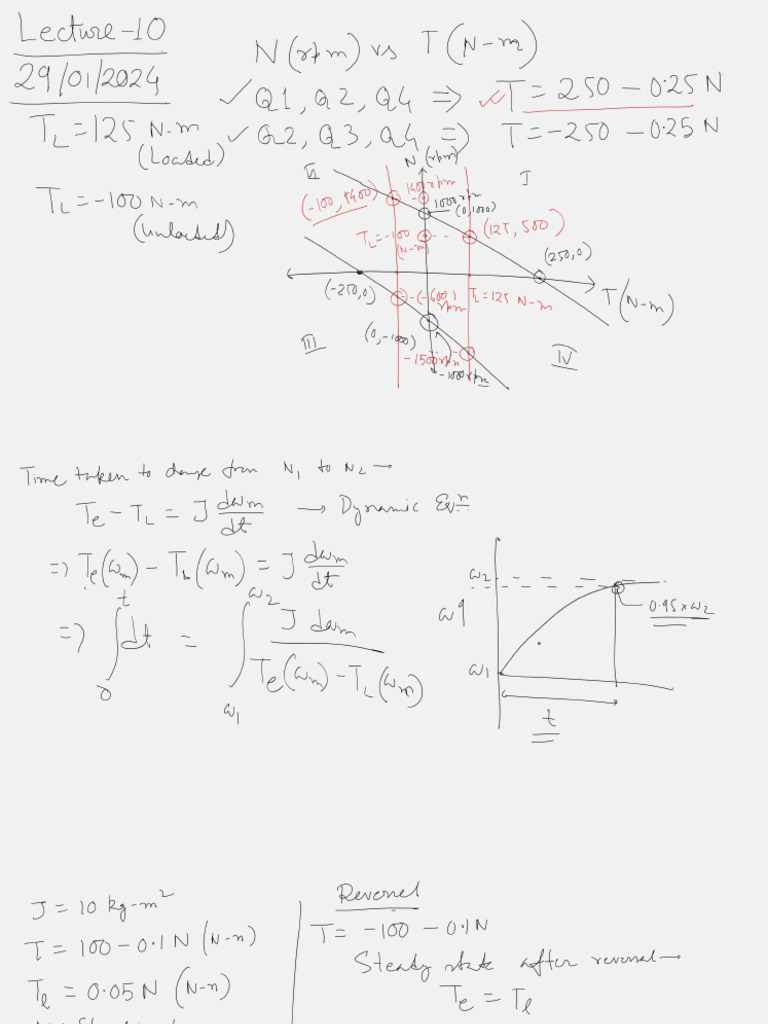 Lecture-10
29/01/2024
N (rpm) vs T (N-m)
✓ Q1, Q2, Q4 ⇒ ✓ T = 250 - 0.25 N
T_L = 125 N-m
(Loaded)
✓ Q2, Q3, Q4 ⇒ T = -250 - 0.25 N
T_L = -100 N-m
(unloaded)
N (rpm)
II
I
(-100, 1400)
1400 rpm
1000 rpm
(0,1000)
T_L = -100
(N-m)
(125, 500)
(250,0)
(-250,0)
(-600)
rpm
T_L = 125 N-m
T (N-m)
(0,-1000)
III
-1500 rpm
-1000 rpm
IV
Time taken to change from N₁ to N₂ →
T_e - T_L = J dω_m/dt → Dynamic Eqⁿ
⇒ T_e(ω_m) - T_L(ω_m) = J dω_m/dt
⇒ ∫₀ᵗ dt = ∫_ω₁^ω₂ J dω_m / T_e(ω_m) - T_L(ω_m)
ω₂
0.95 × ω₂
ω
ω₁
t
J = 10 kg-m²
T = 100 - 0.1 N (N-m)
T_l = 0.05 N (N-m)
Reversal
T = -100 - 0.1 N
Steady state after reversal →
T_e = T_l